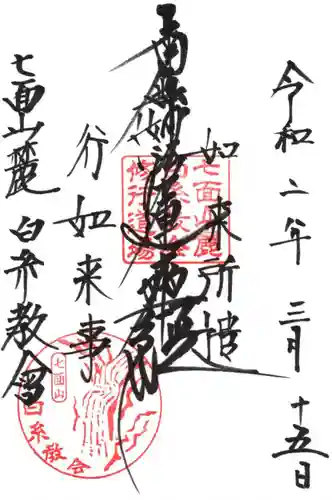 令和二年 三月 十五日
如来所遣
南無妙法蓮華経
行如来事
七面山麓 白糸教會
七面山麓
白糸教会
修行道場
七面山
白糸教会